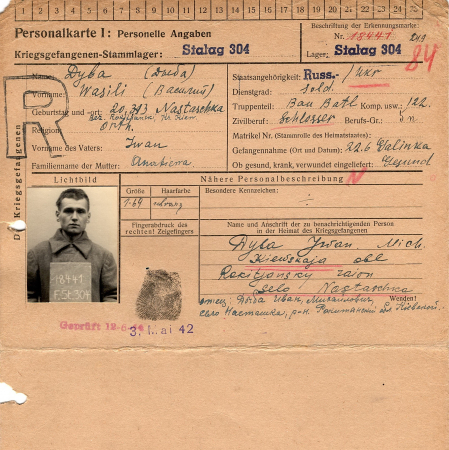 1 2 3 4 5 6 7 8 9 10 11 12 13 14 15 16 17 18 19 20 21 22 23 24 25
Personalkarte I: Personelle Angaben
Beschriftung der Erkennungsmarke:
Nr. 18441
Kriegsgefangenen-Stammlager: Stalag 304
Lager: Stalag 304
84
Name: Dyba (Дыба)
Vorname: Wasili (Василий)
Geburtstag und -ort: 20.3.13 Nastaschka
Religion: Orth.
Vorname des Vaters: Iwan
Familienname der Mutter:
Staatsangehörigkeit: Russ. / Ukr
Dienstgrad: Sold.
Truppenteil: Bau Batl Komp. usw.: 122.
Zivilberuf: Schlosser Berufs-Gr.:
Matrikel Nr. (Stammrolle des Heimatstaates):
Gefangennahme (Ort und Datum): 22.6
Ob gesund, krank, verwundet eingeliefert: Gesund
R
Lichtbild
Nähere Personalbeschreibung
Größe Haarfarbe
1.69 schwarz
Besondere Kennzeichen:
Fingerabdruck des rechten! Zeigefingers
18441
F.St.304
Name und Anschrift der zu benachrichtigenden Person
in der Heimat des Kriegsgefangenen
Dyba Iwan Mich.
Kiewskaja obl
Rakitjansky raion
selo Nastaschka
Wenden!
отец, Дыба Иван Михайлович,
село Насташка, р-н Ракитянский обл Киевской.
Geprüft
3. Mai 42